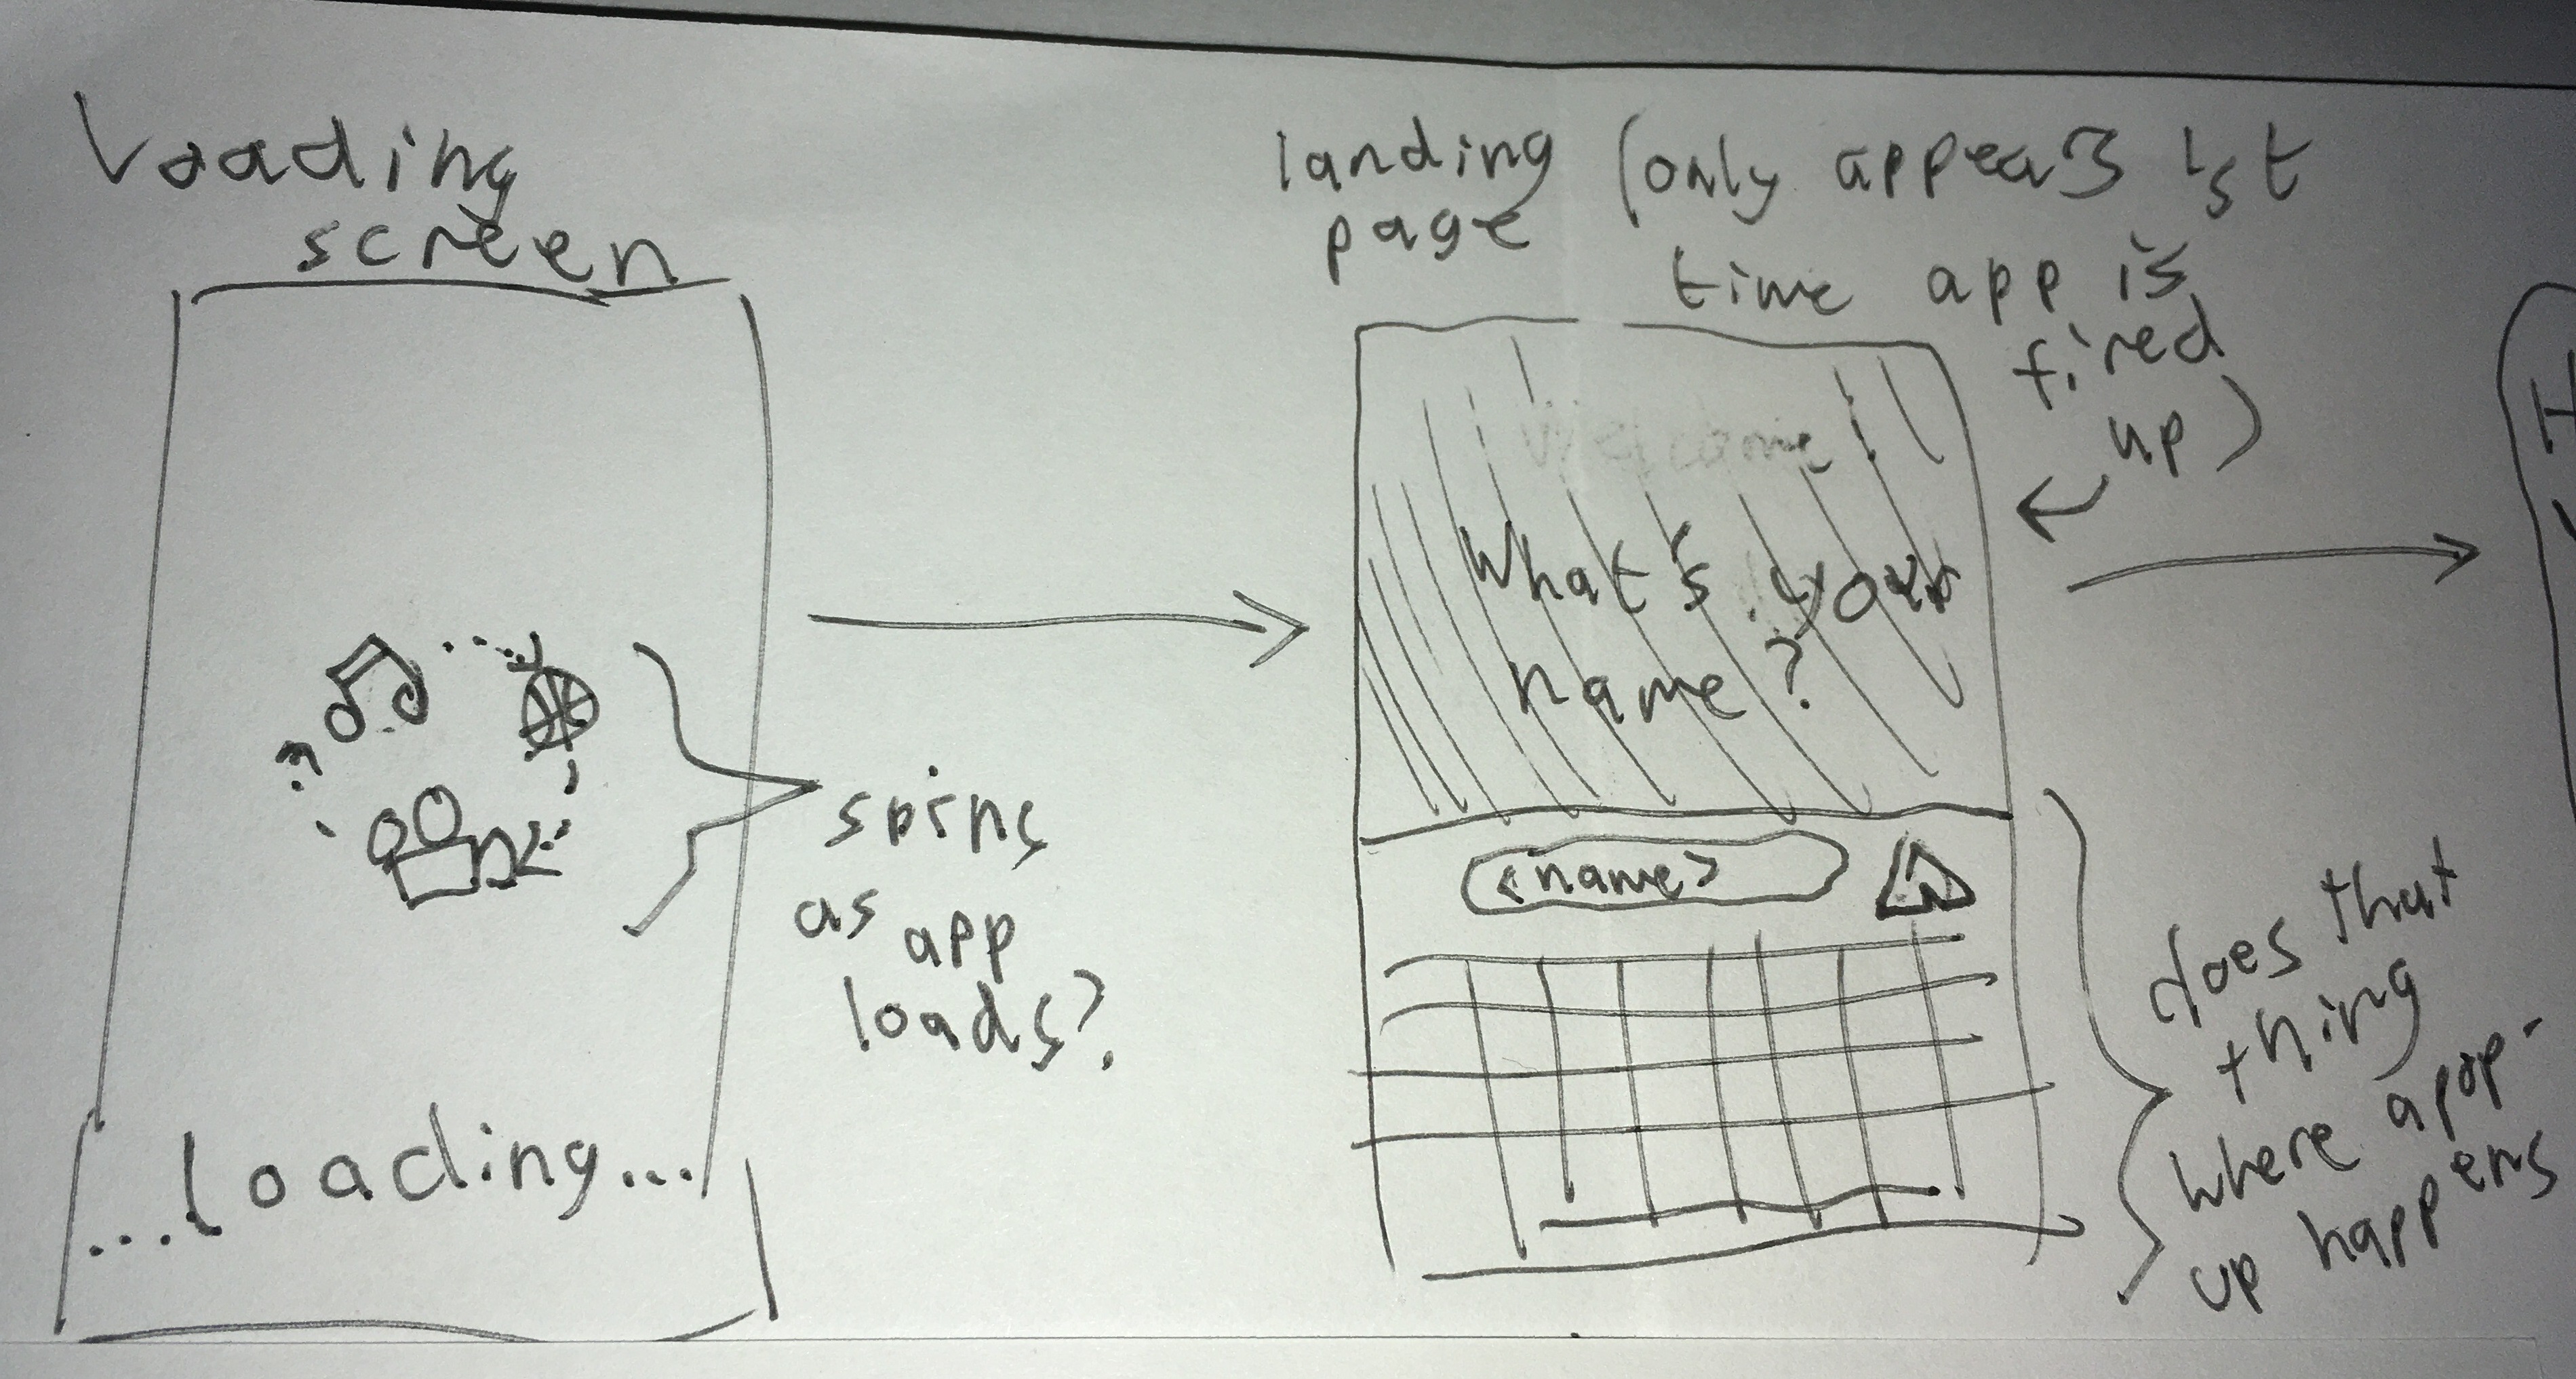 Loading
screen
spins
as app
loads?
...loading...
landing (only appears 1st
page
time app is
fired
up)
Welcome!
What's your
name?
<name>
does that
thing
where a pop-
up happens